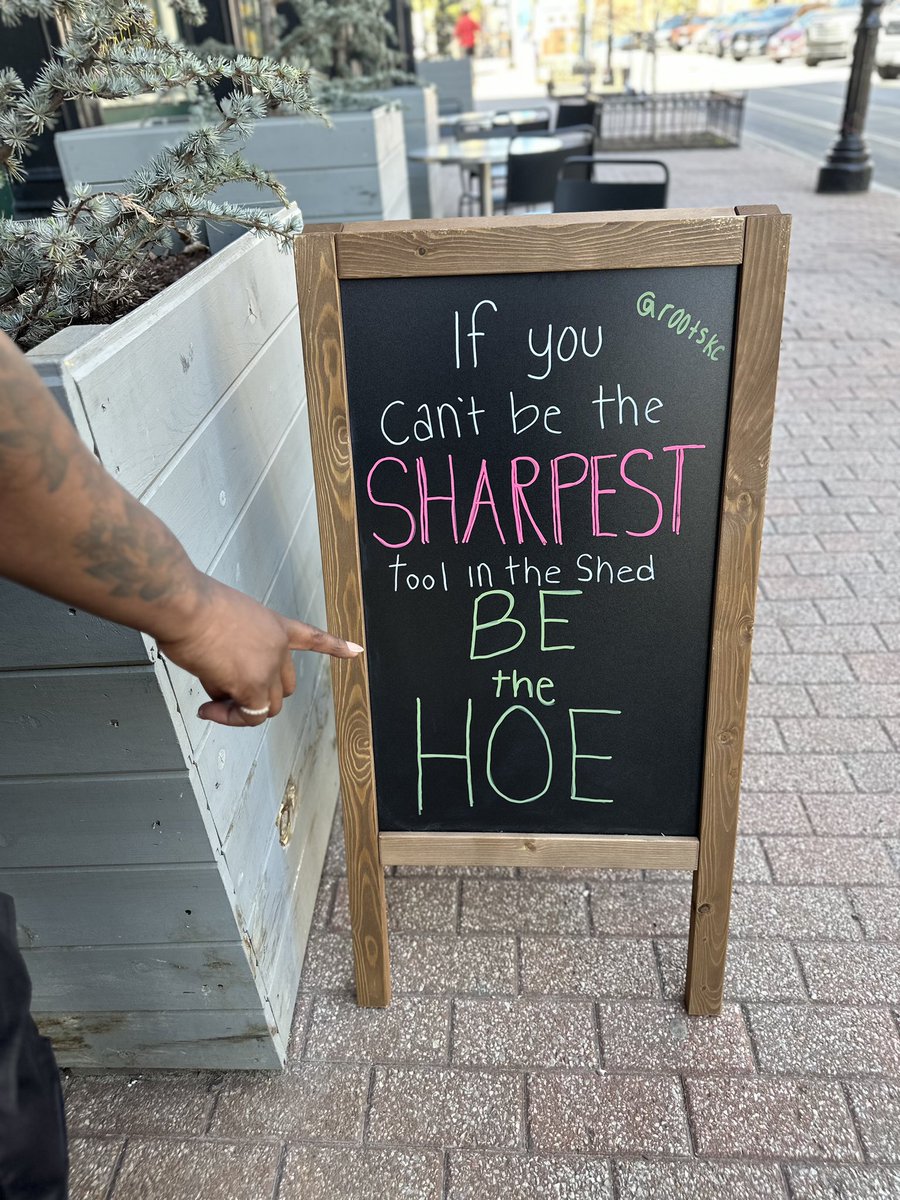 If you
@rootskc
Can't be the
SHARPEST
tool in the Shed
BE
the
HOE